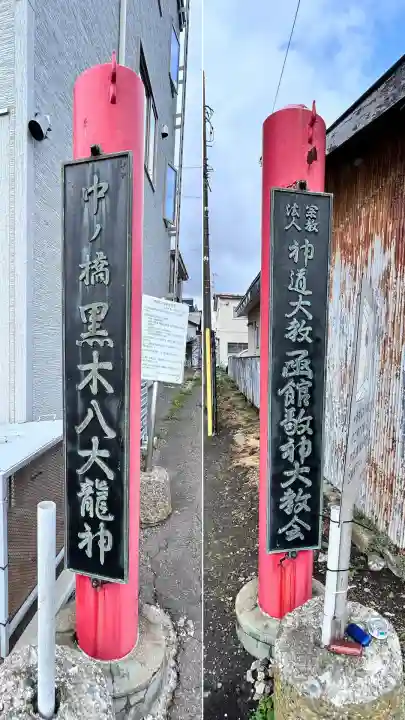 中ノ橋 黒木八大龍神
宗教法人 神道大教 函館敬神大教会